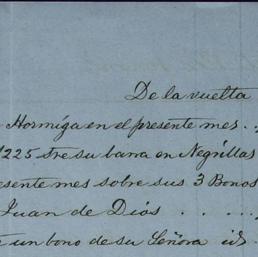 De la vuelta
Hormiga en el presente mes . .
1225 stre su barra en Negrillas
esente mes sobre sus 3 Bonos
Juan de Dios . . . . .
un bono de su Señora id.